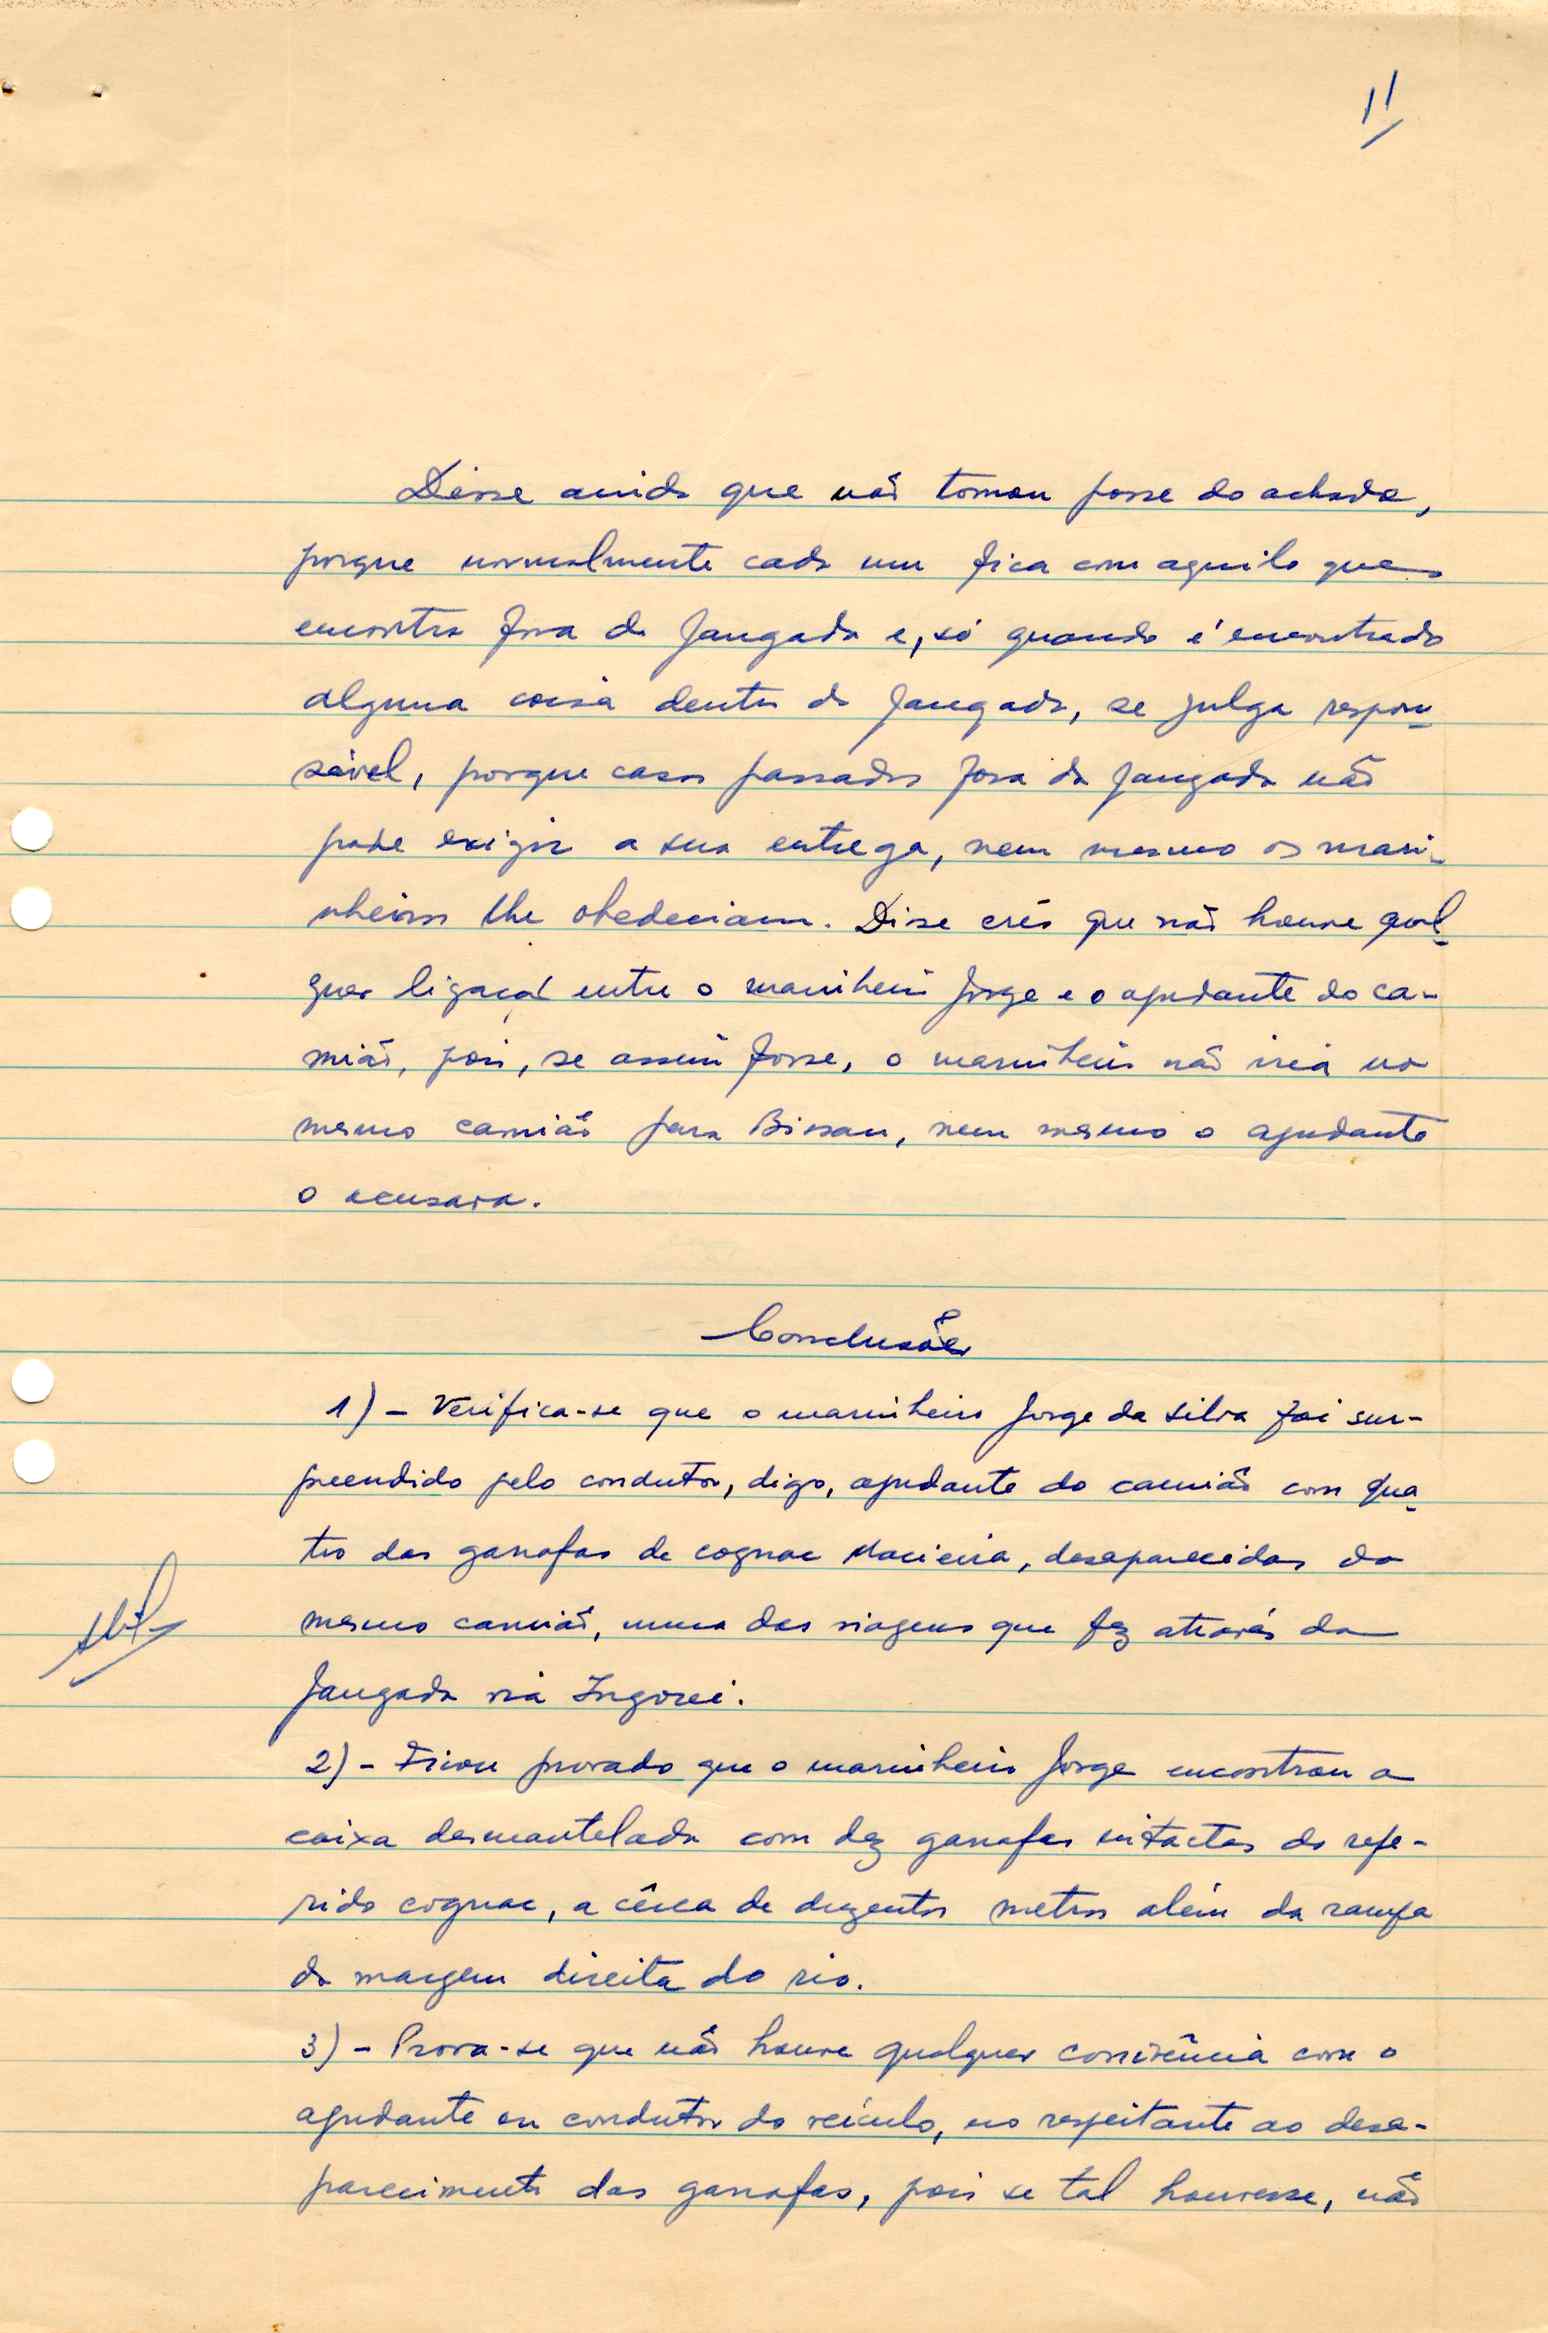 11
Disse ainda que não tomou posse do achado,
porque normalmente cada um fica com aquilo que
encontra fora da jangada e, só quando é encontrado
alguma coisa dentro da jangada, se julga respon-
sável, porque casos passados fora da jangada não
pode exigir a sua entrega, nem mesmo os mari-
nheiros lhe obedeciam. Disse crêr que não houve qual-
quer ligação entre o marinheiro Jorge e o ajudante do ca-
mião, pois, se assim fosse, o marinheiro não iria no
mesmo camião para Bissau, nem mesmo o ajudante
o acusava.
Conclusões
1) - Verifica-se que o marinheiro Jorge da Silva foi sur-
preendido pelo condutor, digo, ajudante do camião com qua-
tro das garrafas de cognac Macieira, desaparecidas do
mesmo camião, numa das viagens que fez através da
jangada via Ingorei.
2) - Ficou provado que o marinheiro Jorge encontrou a
caixa desmantelada com dez garrafas intactas do refe-
rido cognac, a cêrca de duzentos metros além da rampa
da margem direita do rio.
3) - Prova-se que não houve qualquer conivência com o
ajudante ou condutor do veículo, no respeitante ao desa-
parecimento das garrafas, pois se tal houvesse, não